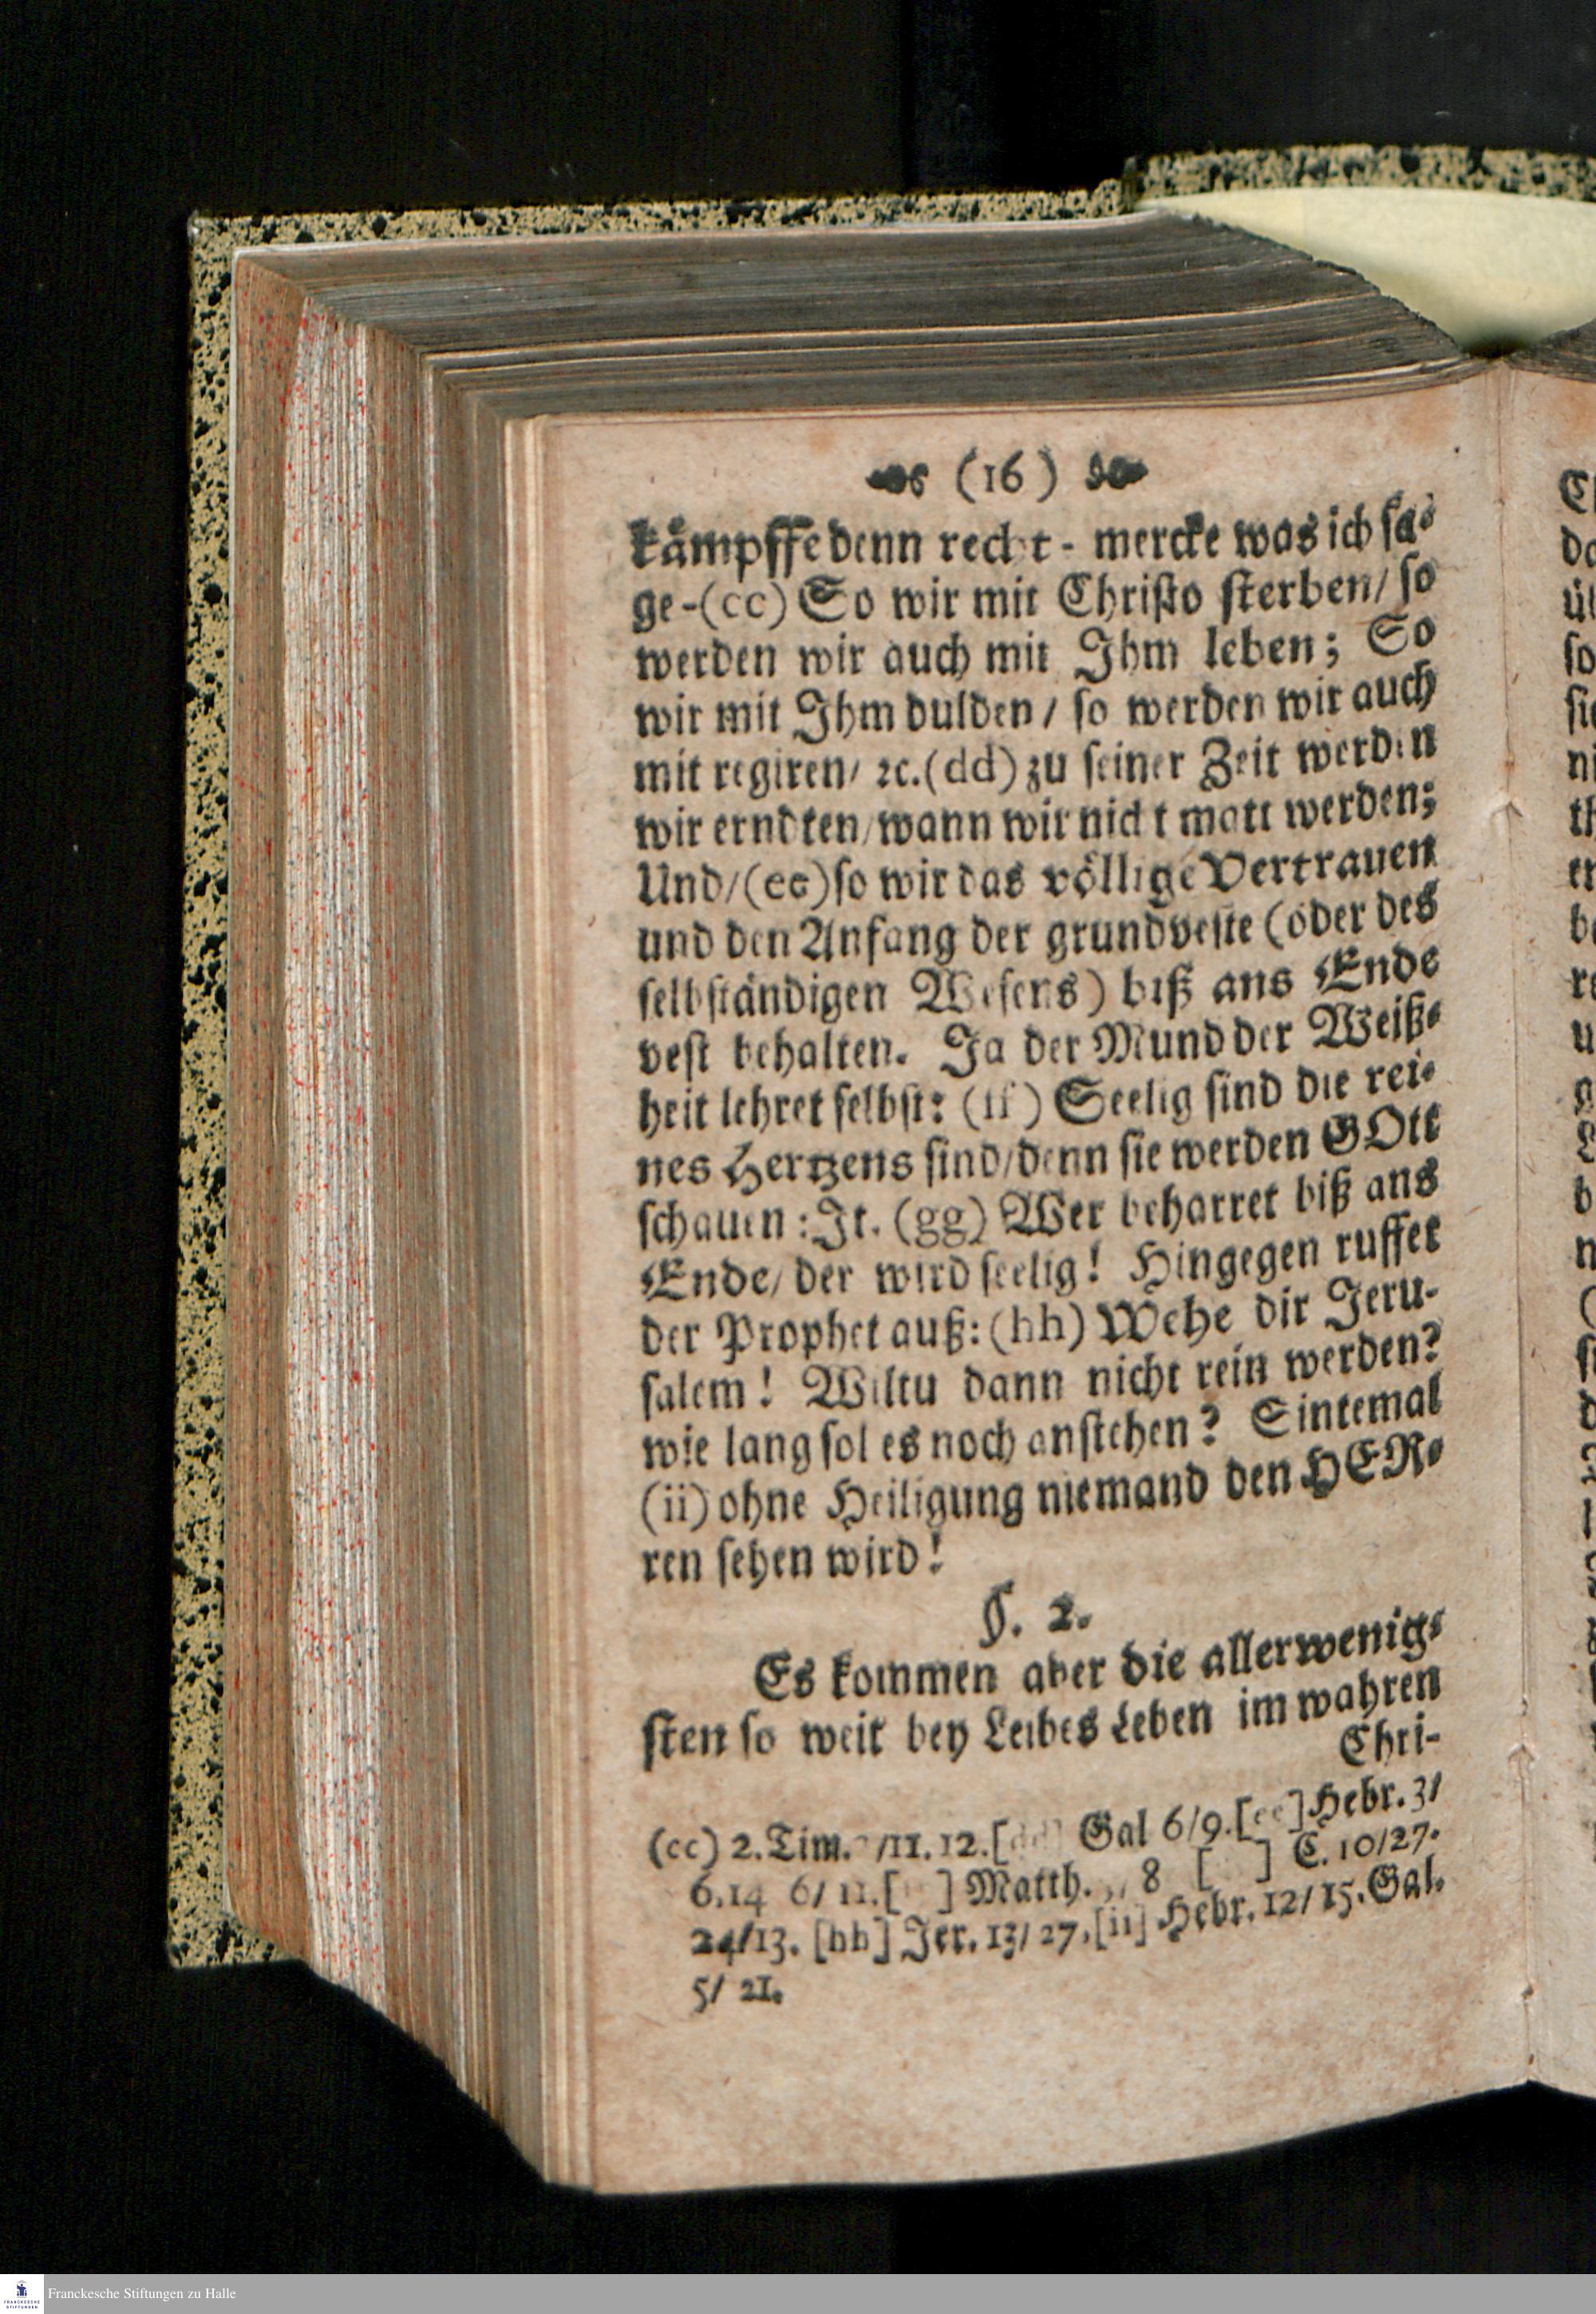 (16)
kämpffe denn recht - mercke was ich sa-
ge-(cc) So wir mit Christo sterben/ so
werden wir auch mit Ihm leben; So
wir mit Ihm dulden / so werden wir auch
mit regiren/ ꝛc.(dd) zu seiner Zeit werden
wir erndten/wann wir nicht matt werden;
Und/(ee)so wir das völlige Vertrauen
und den Anfang der grundveste (oder des
selbständigen Wesens) biß ans Ende
vest behalten. Ja der Mund der Weiß-
heit lehret selbst: (ff) Seelig sind die rei-
nes Hertzens sind/denn sie werden GOtt
schauen : It. (gg) Wer beharret biß ans
Ende/ der wird seelig! Hingegen ruffet
der Prophet auß: (hh) Wehe dir Jeru-
salem! Wiltu dann nicht rein werden?
wie lang sol es noch anstehen? Sintemal
(ii) ohne Heiligung niemand den HER-
ren sehen wird!
§. 2.
Es kommen aber die allerwenig-
sten so weit bey Leibes Leben im wahren
Chri-
(cc) 2. Tim. /11. 12. [dd] Gal 6/9. [ee] Hebr. 3/
6.14 6/ 11. [ ] Matth. 8 [ ] C. 10/27.
24/13. [hh] Jer. 13/ 27. [ii] Hebr. 12/ 15. Gal.
5/ 21.
Franckesche Stiftungen zu Halle